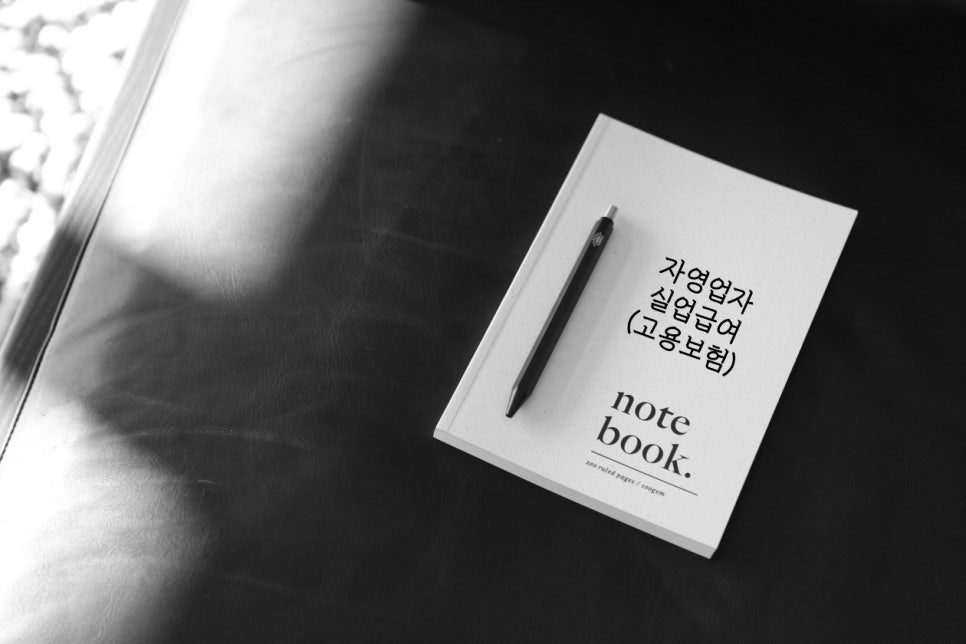 자영업자
실업급여
(고용보험)
note
book.
200 ruled pages / 100gsm